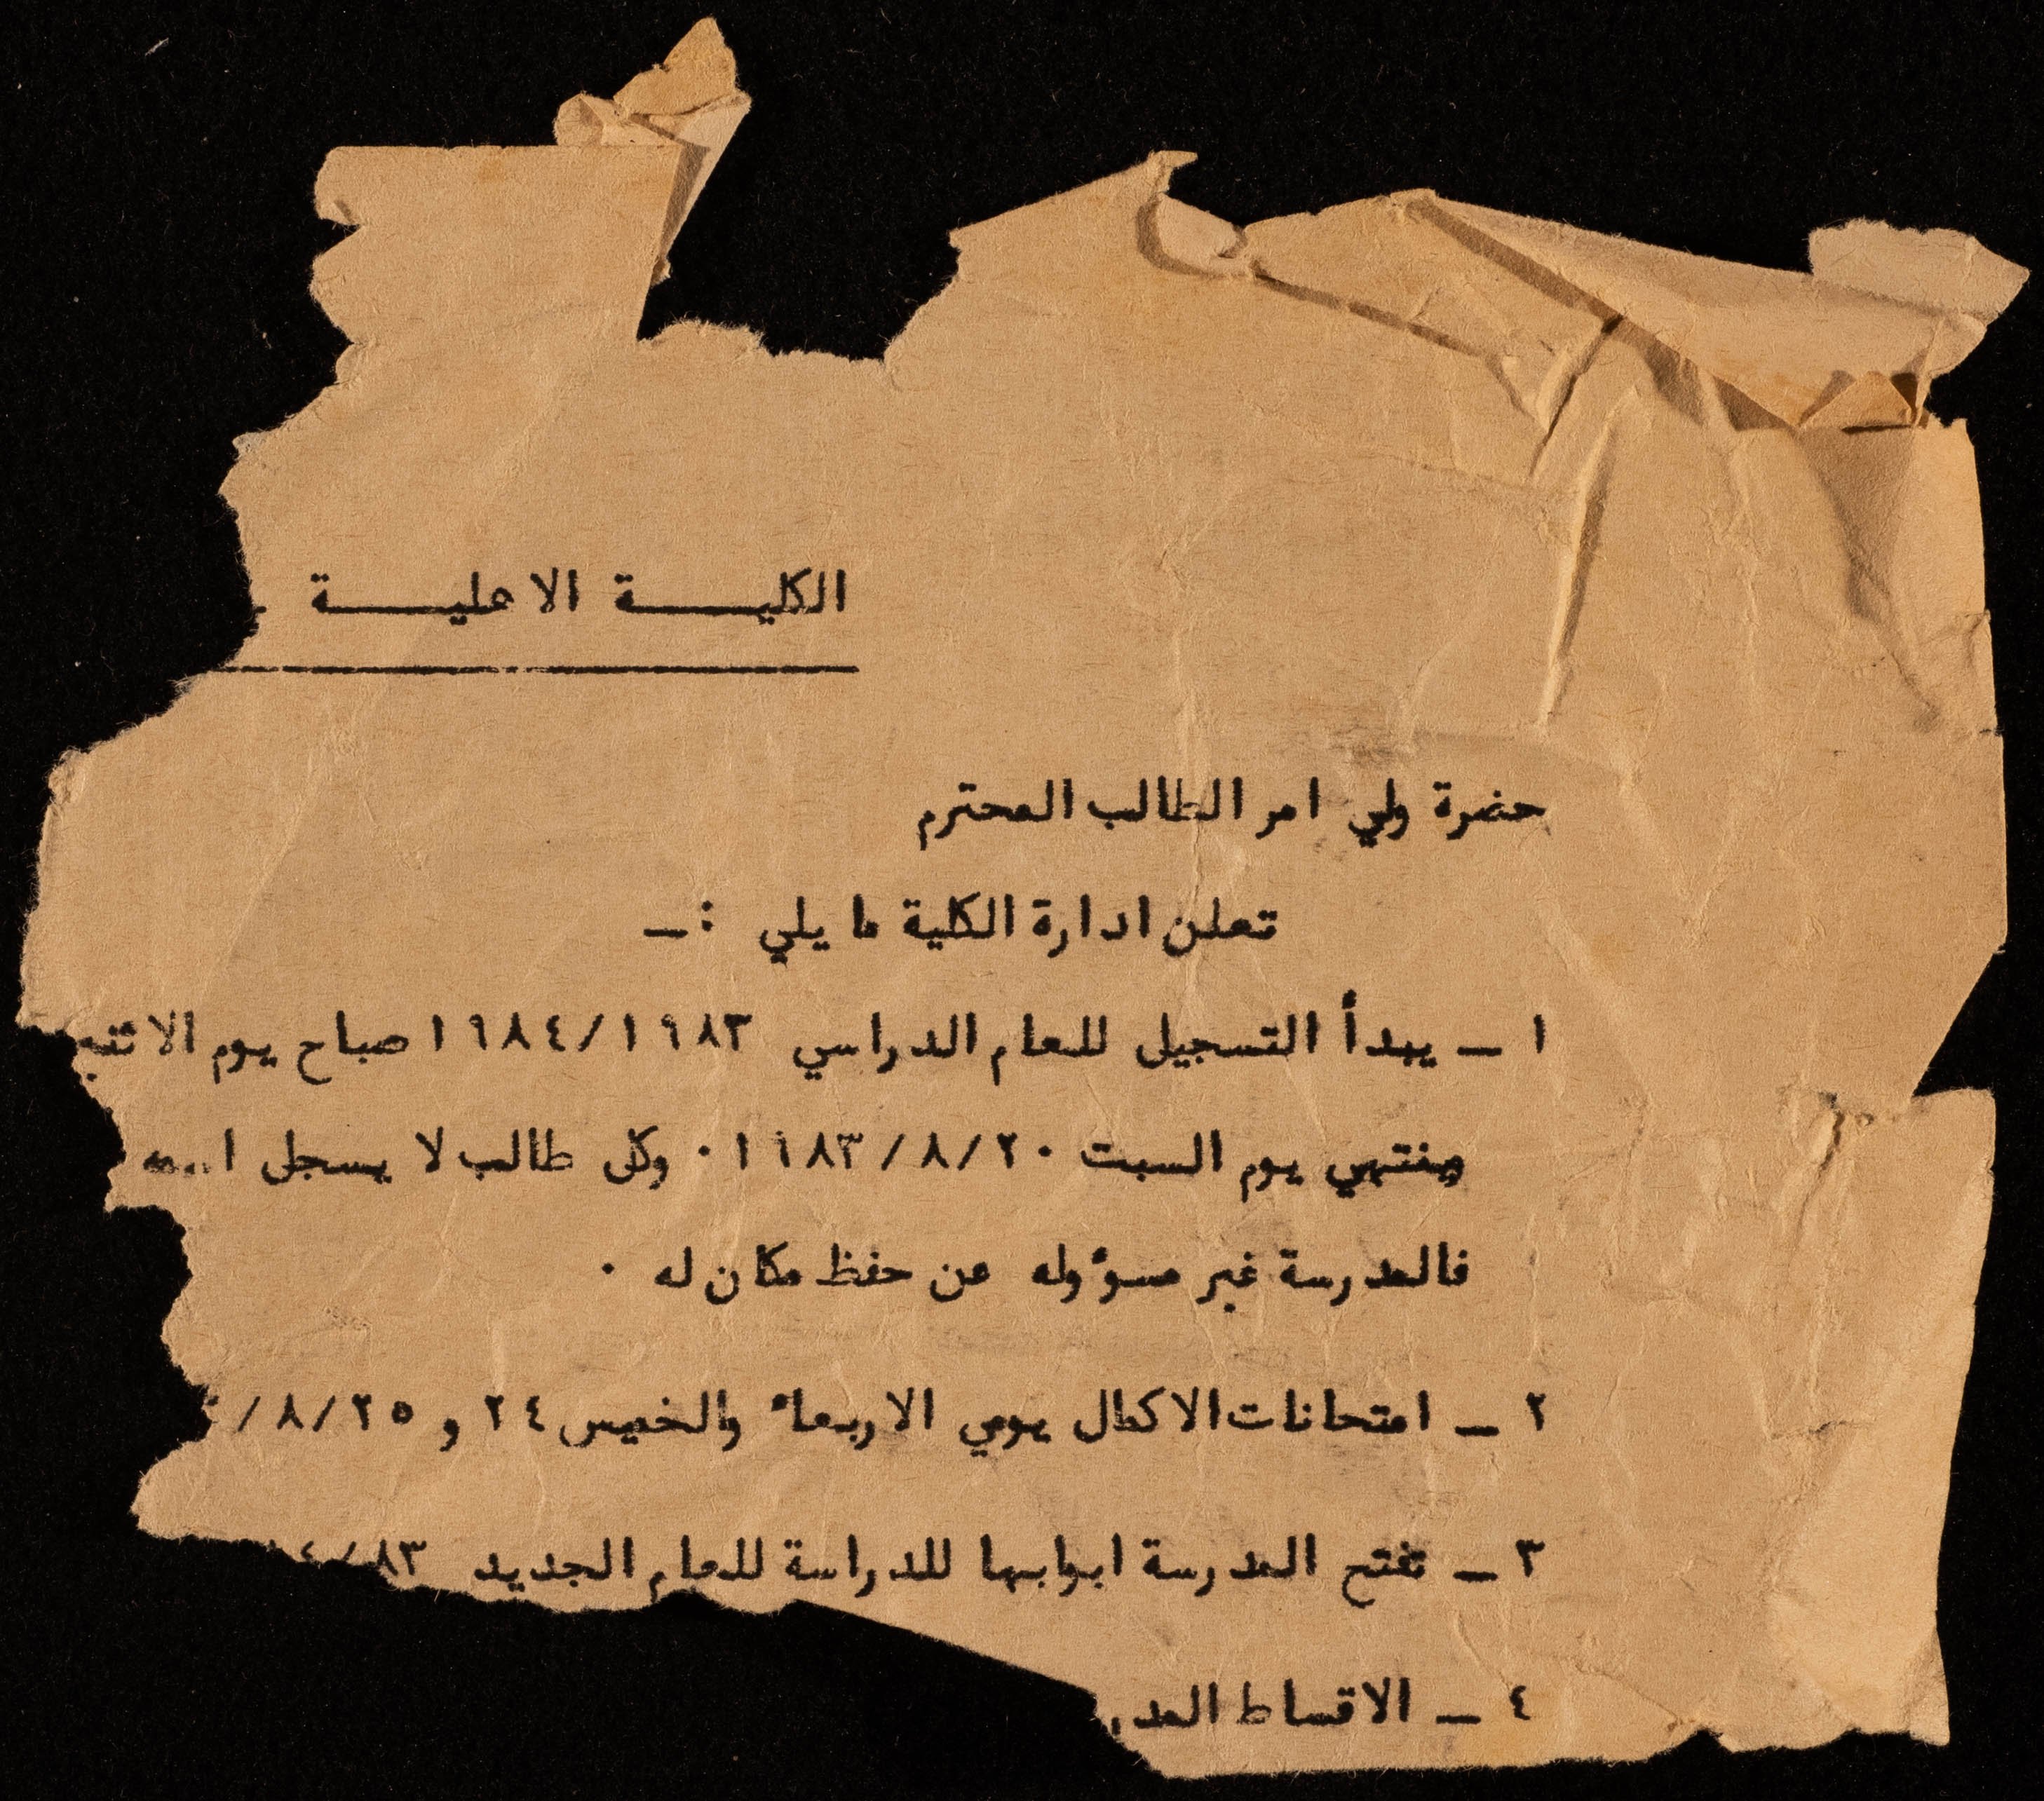 الكليـــــة الاهليـــــة
حضرة ولي امر الطالب المحترم
تعلن ادارة الكلية ما يلي :ــ
١ ــ يبدأ التسجيل للعام الدراسي ١٩٨٤/١٩٨٣ صباح يوم
وينتهي يوم السبت ١٩٨٣/٨/٢٠ ٠ وكل طالب لا يسجل
فالمدرسة غير مسؤوله عن حفظ مكان له ٠
٢ ــ امتحانات الاكمال يومي الاربعاء والخميس ٢٤ و ٢٥/٨/
٣ ــ تفتح المدرسة ابوابها للدراسة للعام الجديد ٨٣/
٤ ــ الاقساط